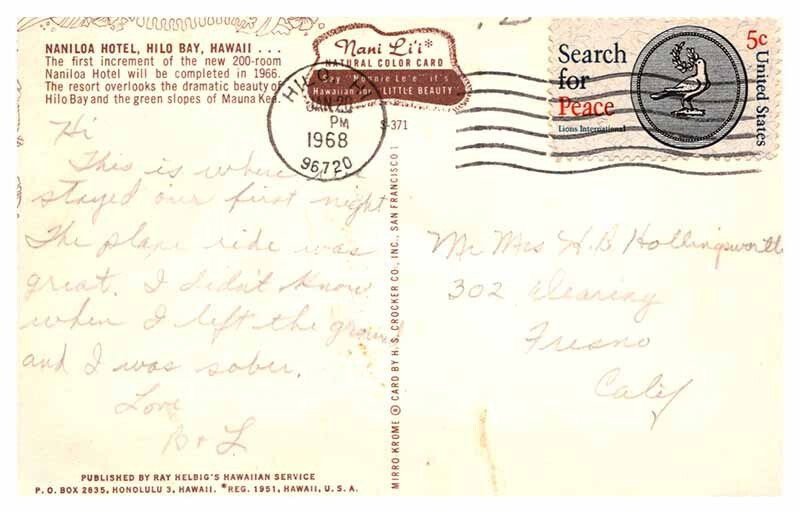 NANILOA HOTEL, HILO BAY, HAWAII . . .
The first increment of the new 200-room
Naniloa Hotel will be completed in 1966.
The resort overlooks the dramatic beauty of
Hilo Bay and the green slopes of Mauna Kea.
Nani Li'i*
NATURAL COLOR CARD
Say "Nonnie Le'e" it's
Hawaiian LITTLE BEAUTY
S-371
HILO
JAN 20
PM
1968
96720
Search
for
Peace
Lions International
5c
United States
Hi
This is where
stayed our first night
The plane ride was
great. I didn't know
when I left the ground
and I was sober.
Love
B + L
Mr Mrs H B Hollingsworth
302 Dearing
Fresno
Calif
MIRRO KROME ® CARD BY H. S. CROCKER CO., INC., SAN FRANCISCO 1
PUBLISHED BY RAY HELBIG'S HAWAIIAN SERVICE
P. O. BOX 2835, HONOLULU 3, HAWAII. *REG. 1951, HAWAII, U. S. A.